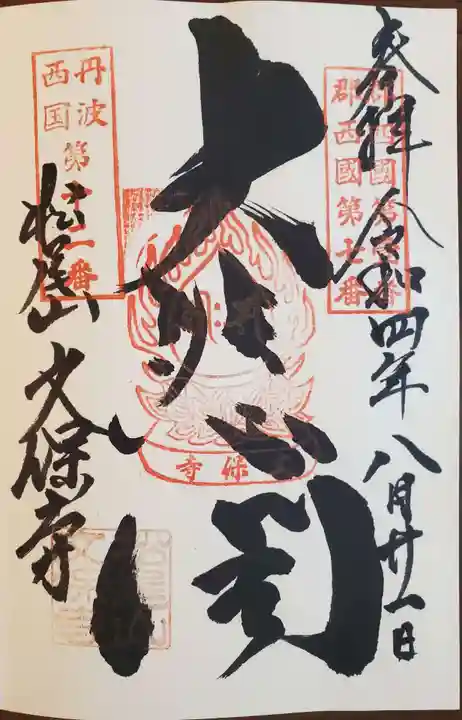 奉拝 令和四年八月廿一日
郡西國第七番
大悲閣
文保寺
丹波
西国
第
番
松尾山 文保寺